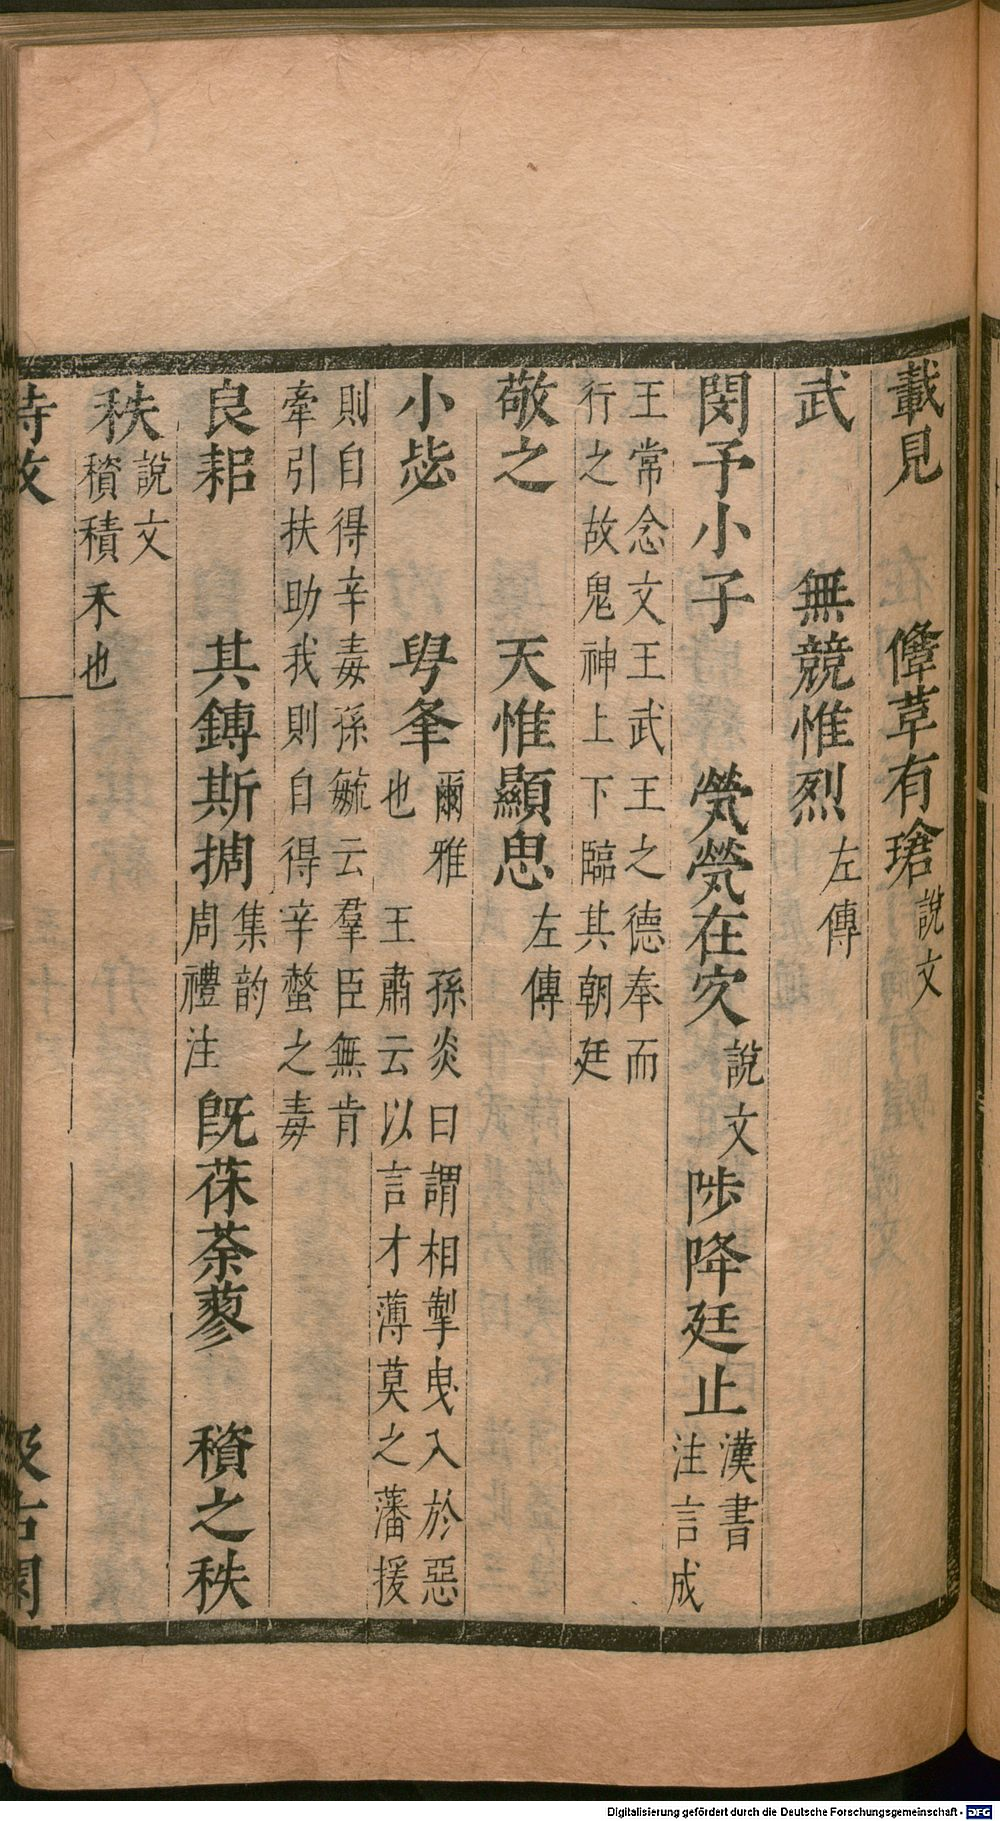 載見　鞗革有瑲說文
武　無競惟烈左傳
閔予小子　煢煢在㝌說文陟降廷止漢書注言成
王常念文王武王之德奉而行之故鬼神上下臨其朝廷
敬之　天惟顯思左傳
小毖　甹夆爾雅也　孫炎曰謂相掣曳入於惡　王肅云以言才薄莫之藩援
則自得辛毒孫毓云羣臣無肯牽引扶助我則自得辛螫之毒
良耜　其鎛斯搁集韵周禮注旣茠荼蓼　䅣之秩
秩說文䅣積禾也
詩攷
汲古閣
Digitalisierung gefördert durch die Deutsche Forschungsgemeinschaft - DFG